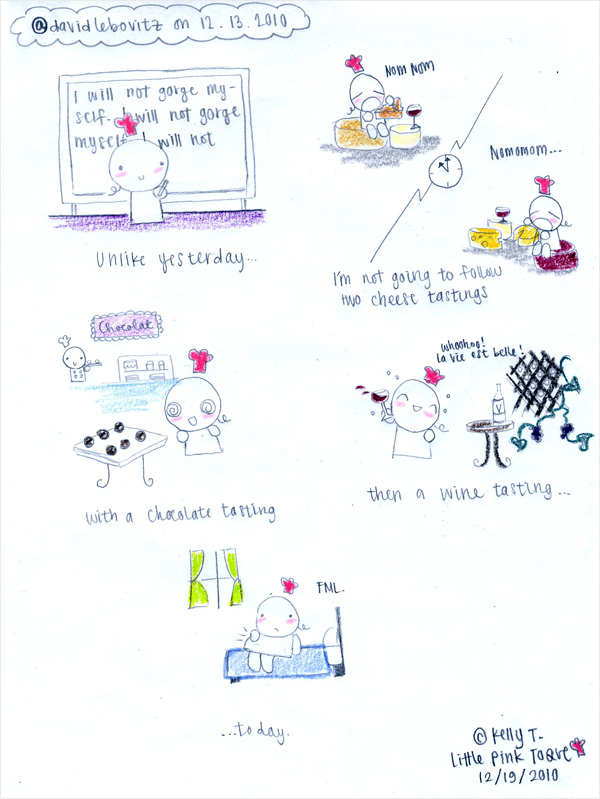 @davidlebovitz on 12.13.2010
I will not gorge my-
self. I will not gorge
myself I will not
Unlike yesterday...
NOM NOM
Nomomom...
I'm not going to follow
two cheese tastings
Chocolat
with a chocolate tasting
whoohoo!
la vie est belle!
V
then a wine tasting...
FML.
...today.
© Kelly T.
Little Pink Toque
12/19/2010